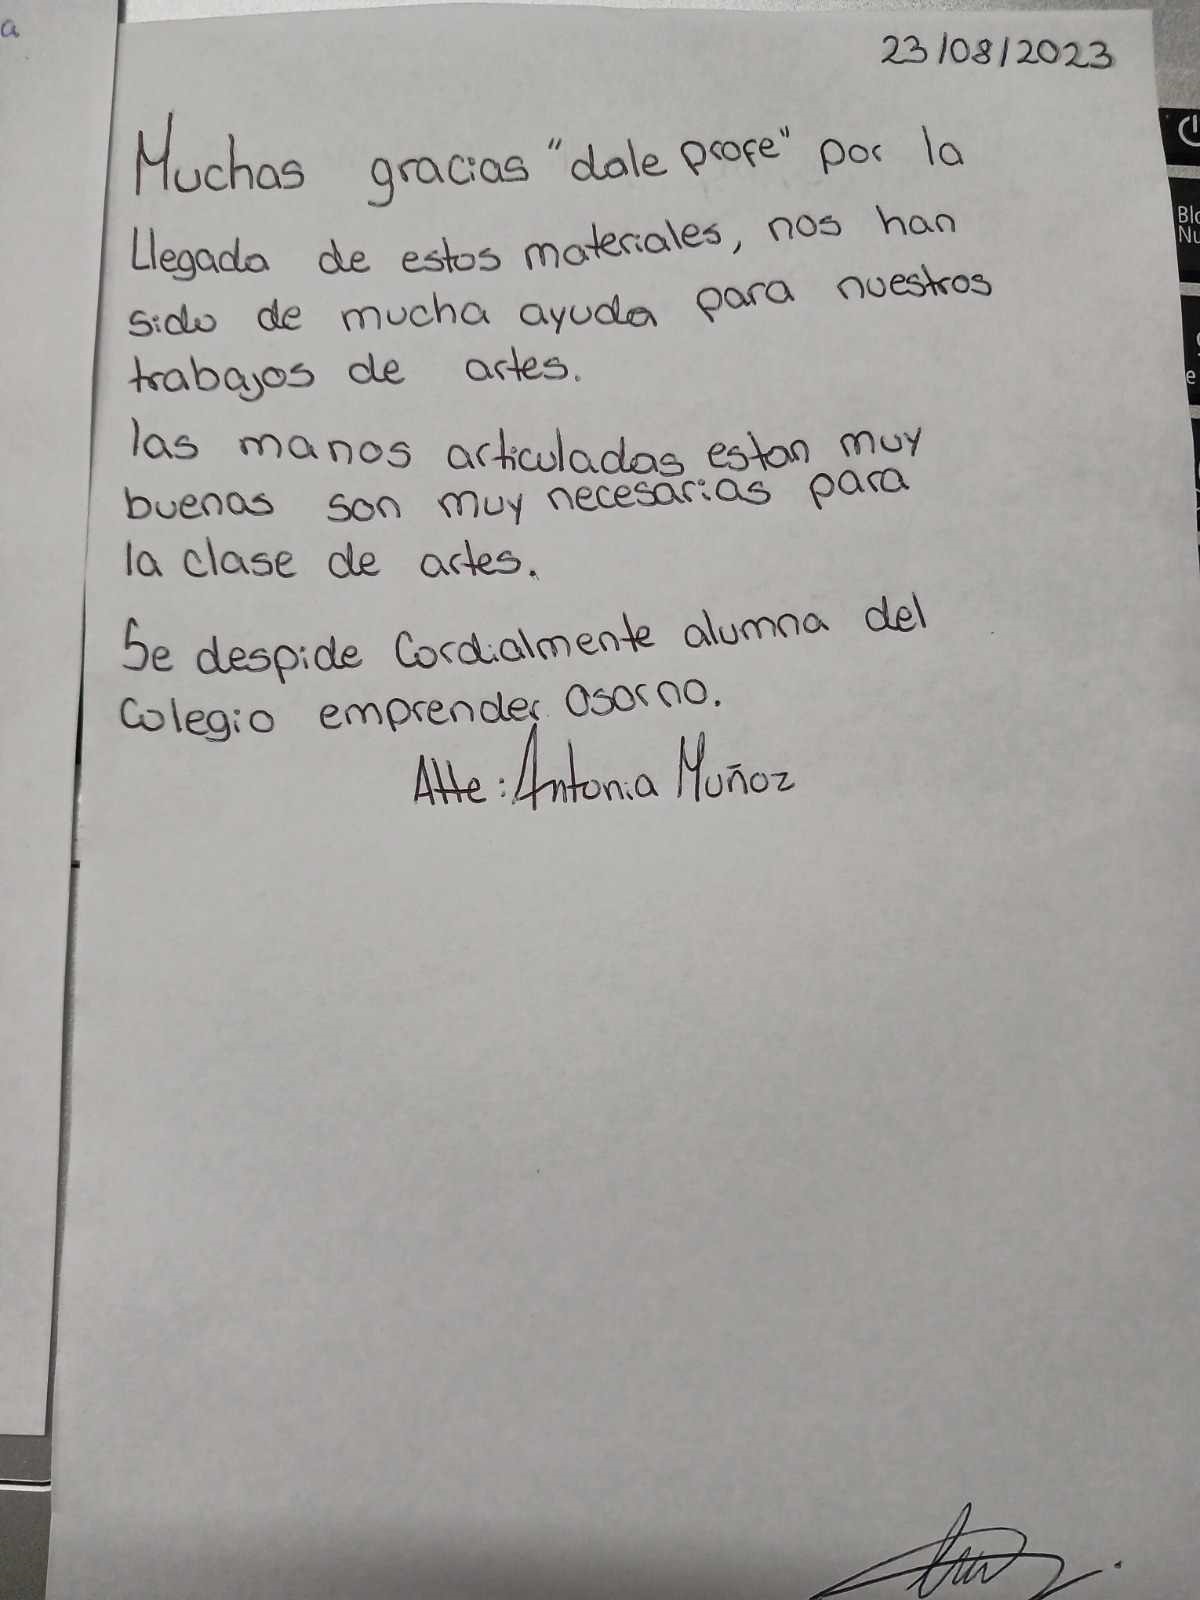 a
23/08/2023
Muchas gracias "dale profe" por la
Llegada de estos materiales, nos han
sido de mucha ayuda para nuestros
trabajos de artes.
las manos articuladas estan muy
buenas son muy necesarias para
la clase de artes.
Se despide Cordialmente alumna del
Colegio emprender Osorno.
Atte: Antonia Muñoz
Blo
Nu
e